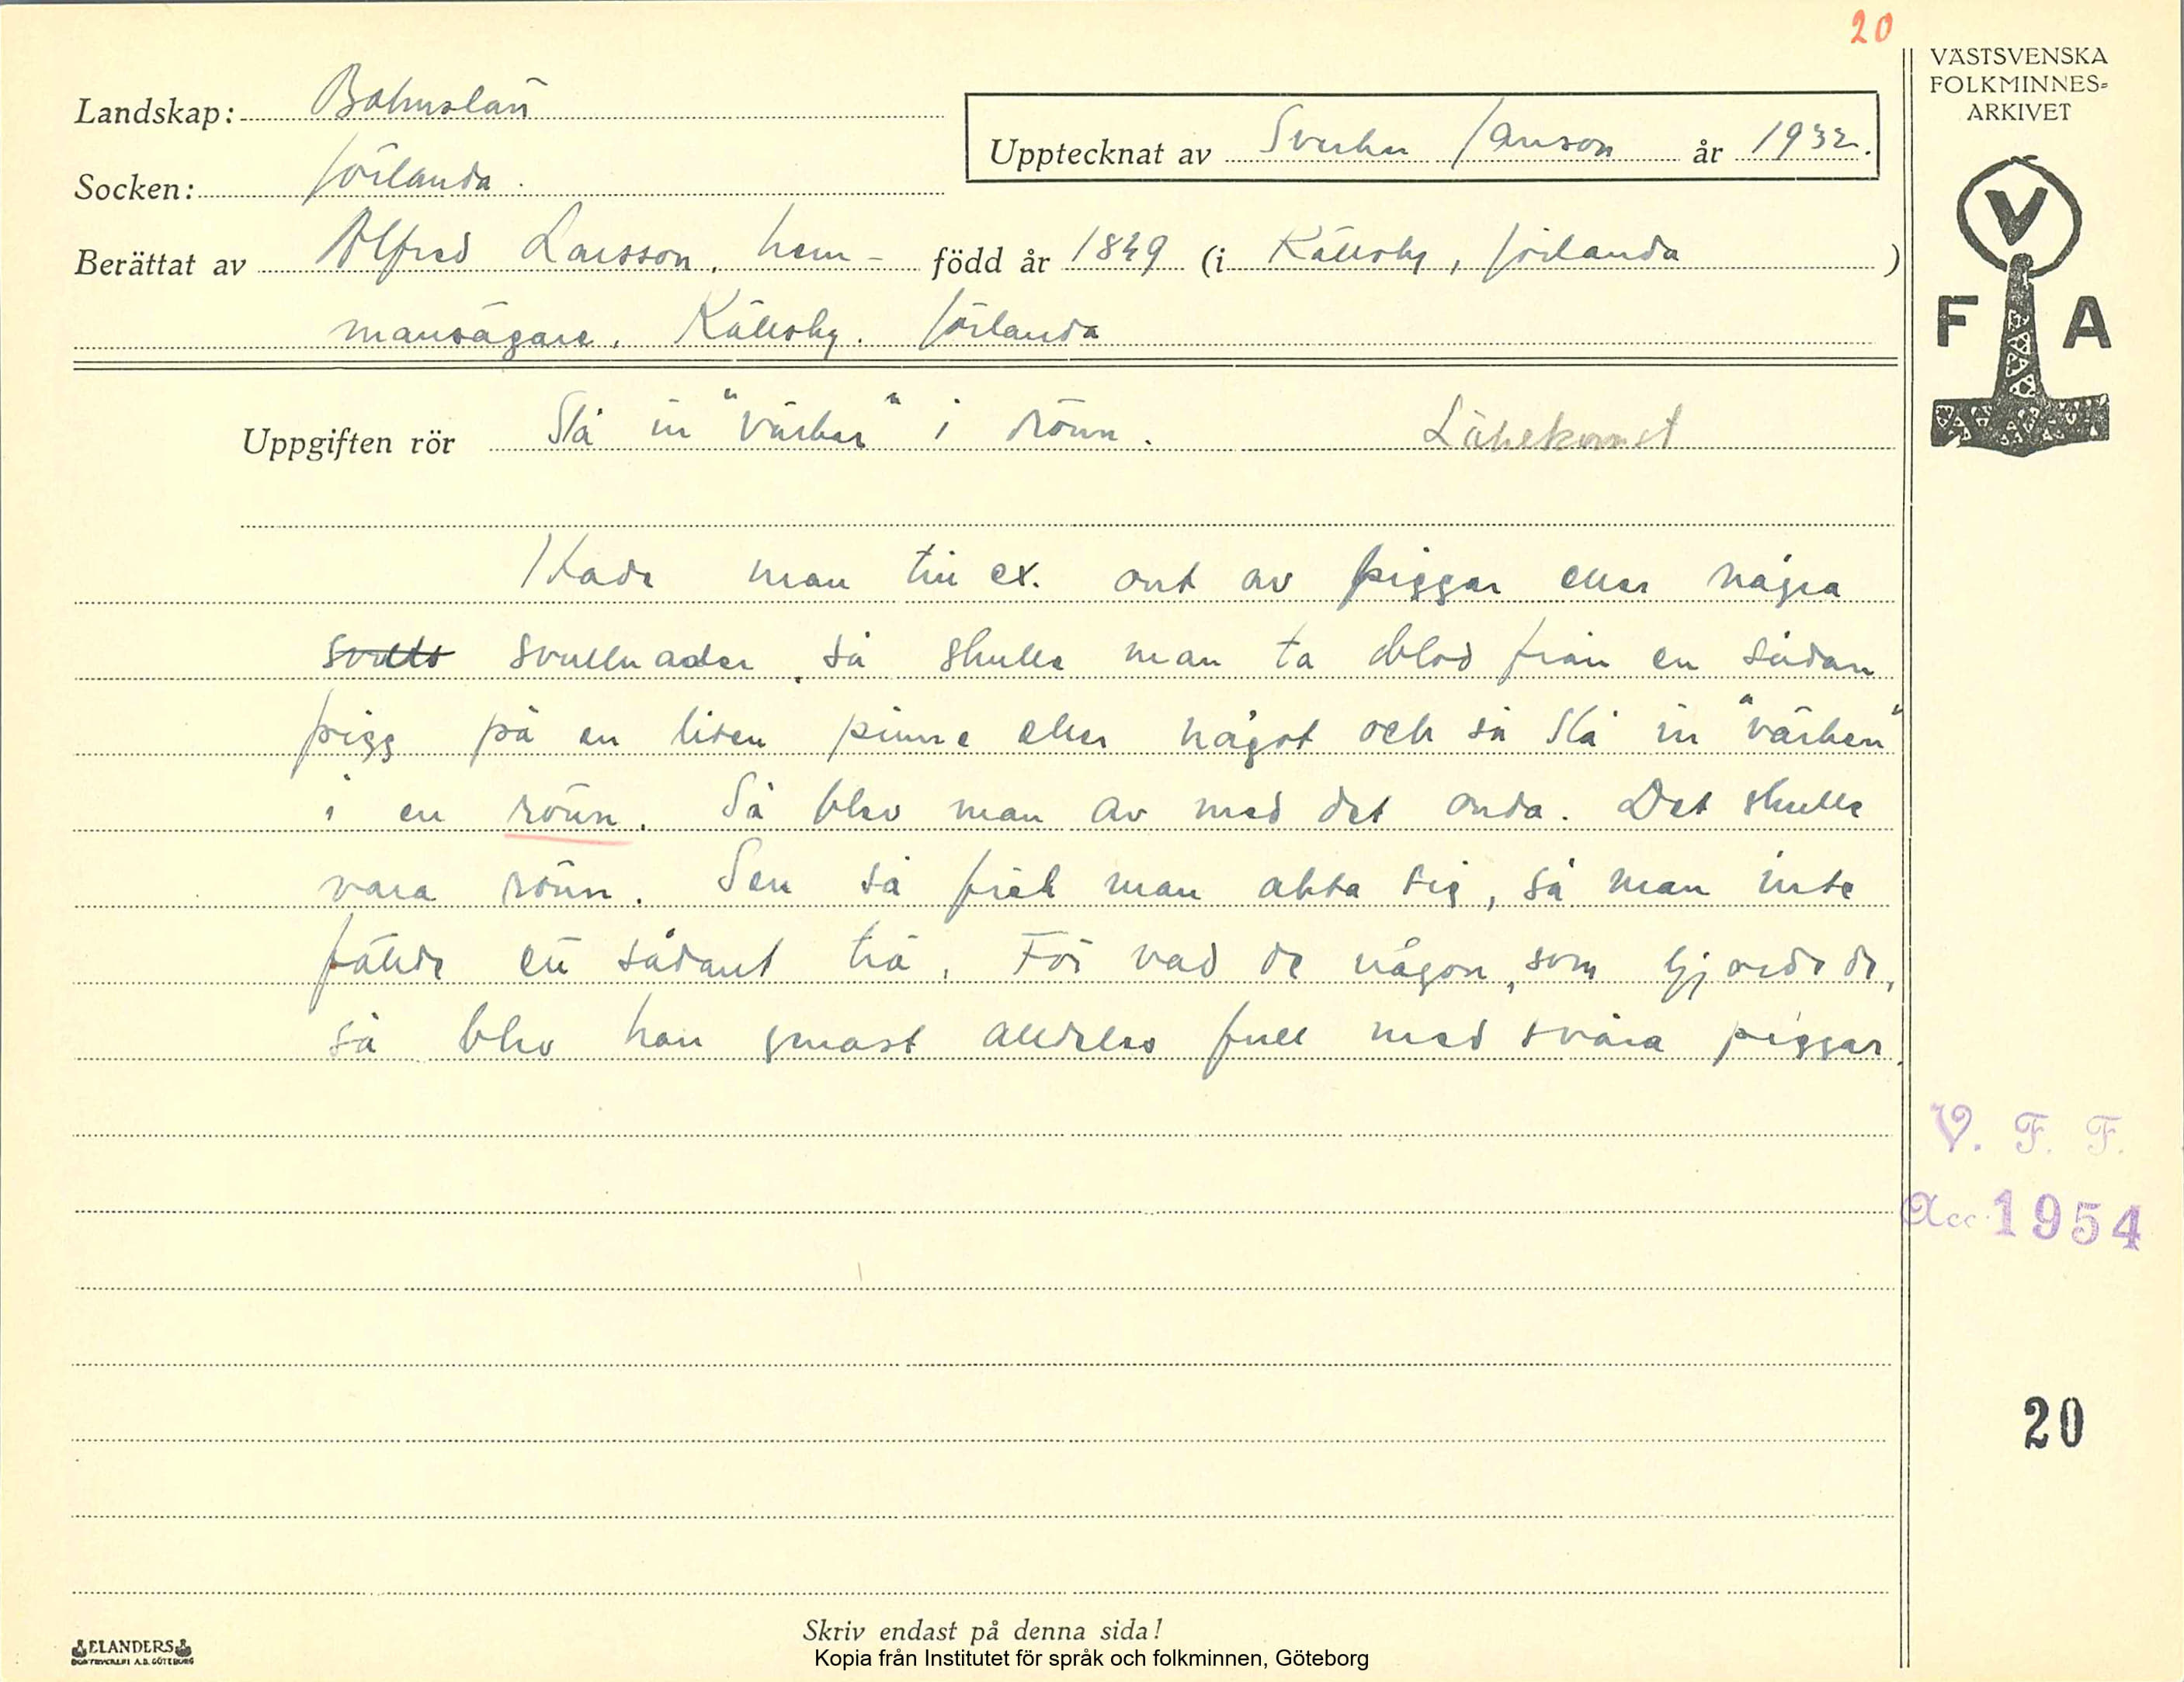 20
VÄSTSVENSKA
FOLKMINNES-
ARKIVET
Landskap: Bohuslän
Upptecknat av Sverker Janson år 1932.
Socken: Jörlanda.
Berättat av Alfred Larsson, hem- född år 1849 (i Källsby, Jörlanda )
mansägare. Källsby. Jörlanda
V
F A
Uppgiften rör Slå in "värken" i rönn. Läkekonst
Hade man till ex. ont av piggar eller några
svullnader, så skulle man ta blod från en sådan
pigg på en liten pinne eller något och så slå in "värken"
i en rönn. Så blev man av med det onda. Det skulle
vara rönn. Sen så fick man akta sig, så man inte
fällde ett sådant trä. För vad de någon, som gjorde de,
så blev han snast alldeles full med svåra piggar.
V. F. F.
Acc. 1954
20
Skriv endast på denna sida!
ELANDERS
BOKTRYCKERI A.B. GÖTEBORG
Kopia från Institutet för språk och folkminnen, Göteborg